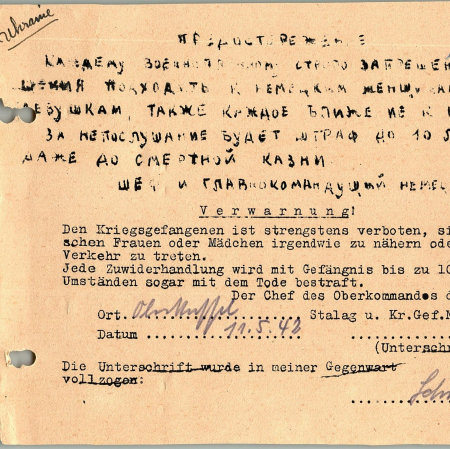 Ukraine
ПРЕДОСТЕРЕЖЕНИЕ
КАЖДОМУ ВОЕННОПЛЕННОМУ СТРОГО ЗАПРЕЩЕН
ШЕНИЯ ПОДХОДИТЬ К НЕМЕЦКИМ ЖЕНЩИНАМ
ДЕВУШКАМ, ТАКЖЕ КАЖДОЕ БЛИЖЕ
ЗА НЕПОСЛУШАНИЕ БУДЕТ ШТРАФ ДО 10 Л
ДАЖЕ ДО СМЕРТНОЙ КАЗНИ
ШЕФ И ГЛАВНОКОМАНДУЩИЙ НЕМЕ
Verwarnung!
Den Kriegsgefangenen ist strengstens verboten, si
schen Frauen oder Mädchen irgendwie zu nähern ode
Verkehr zu treten.
Jede Zuwiderhandlung wird mit Gefängnis bis zu 10
Umständen sogar mit dem Tode bestraft.
Der Chef des Oberkommandos d
Ort. ............... Stalag u. Kr.Gef.M
Datum ...11.5.42........
(Unterschr
Die Unterschrift wurde in meiner Gegenwart
vollzogen: